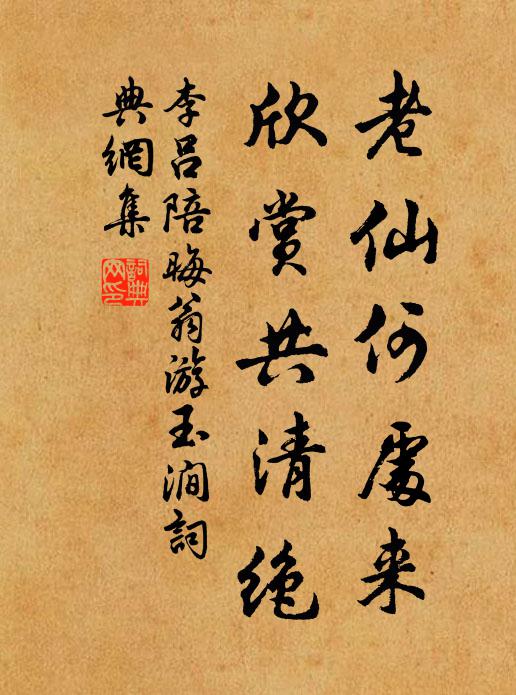 老仙何處来
欣赏共清绝
李吕陪晦翁游玉涧詞
典網集
詞典网印